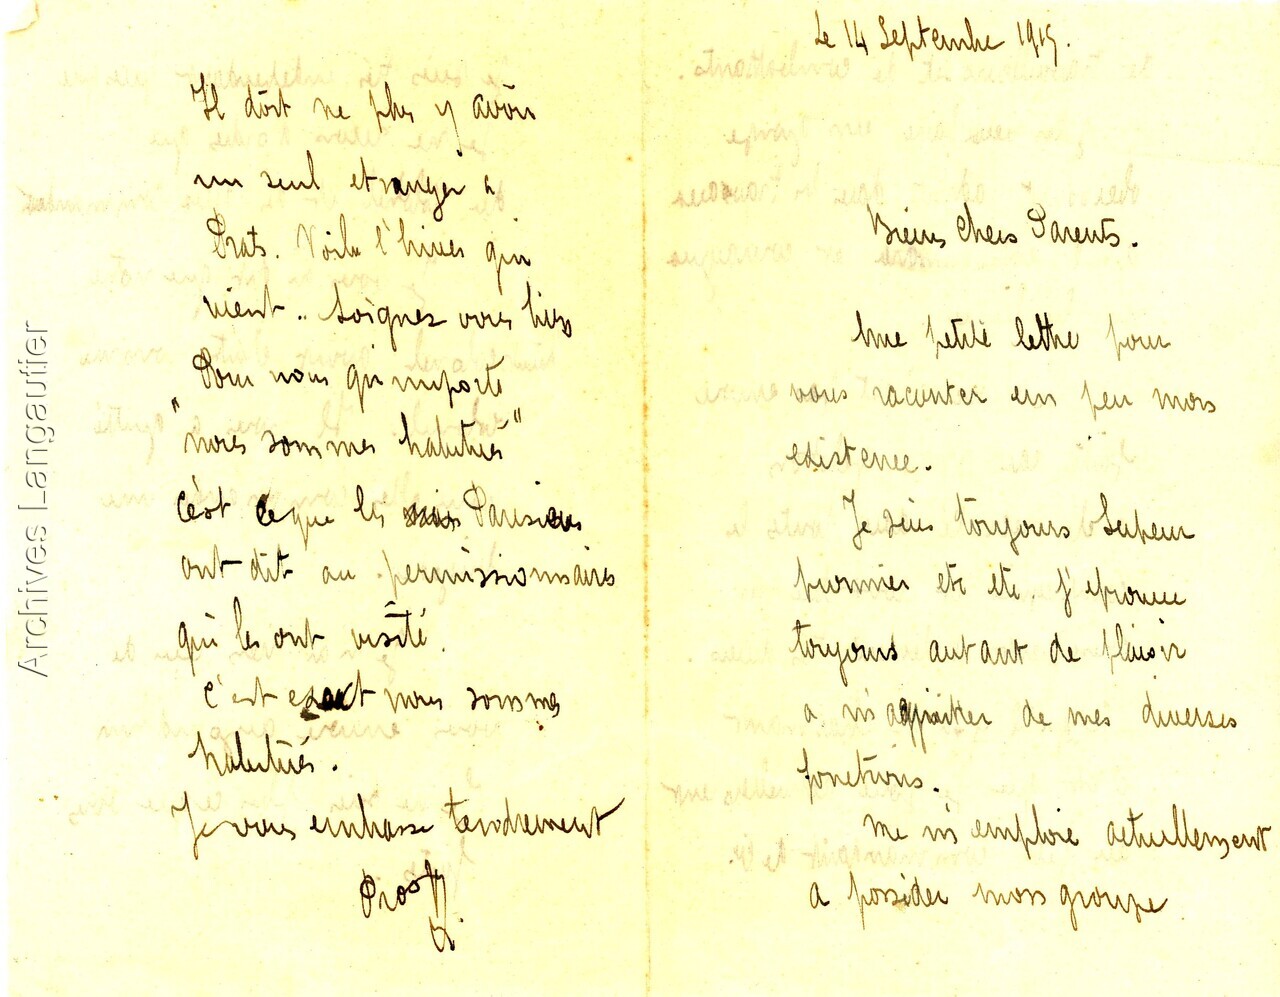 Le 14 Septembre 1915.
Biens Chers Parents.
Une petite lettre pour
vous raconter un peu mon
existence.
Je suis toujours Sapeur
pionnier etc etc. J'eprouve
toujours autant de plaisir
a m'aquitter de mes diverses
fonctions.
Me m'emploie actuellement
a posséder mon groupe
Il doit ne plus y avoir
un seul etranger a
Prats. Voila l'hiver qui
vient.. Soignez vous bien
"Pour nous qu'importe
nous sommes habitués"
c'est ce que les Parisiens
ont dit au permissionnaires
qui les ont visité.
C'est exact nous sommes
habitués.
Je vous embrasse tendrement
Archives Langautier